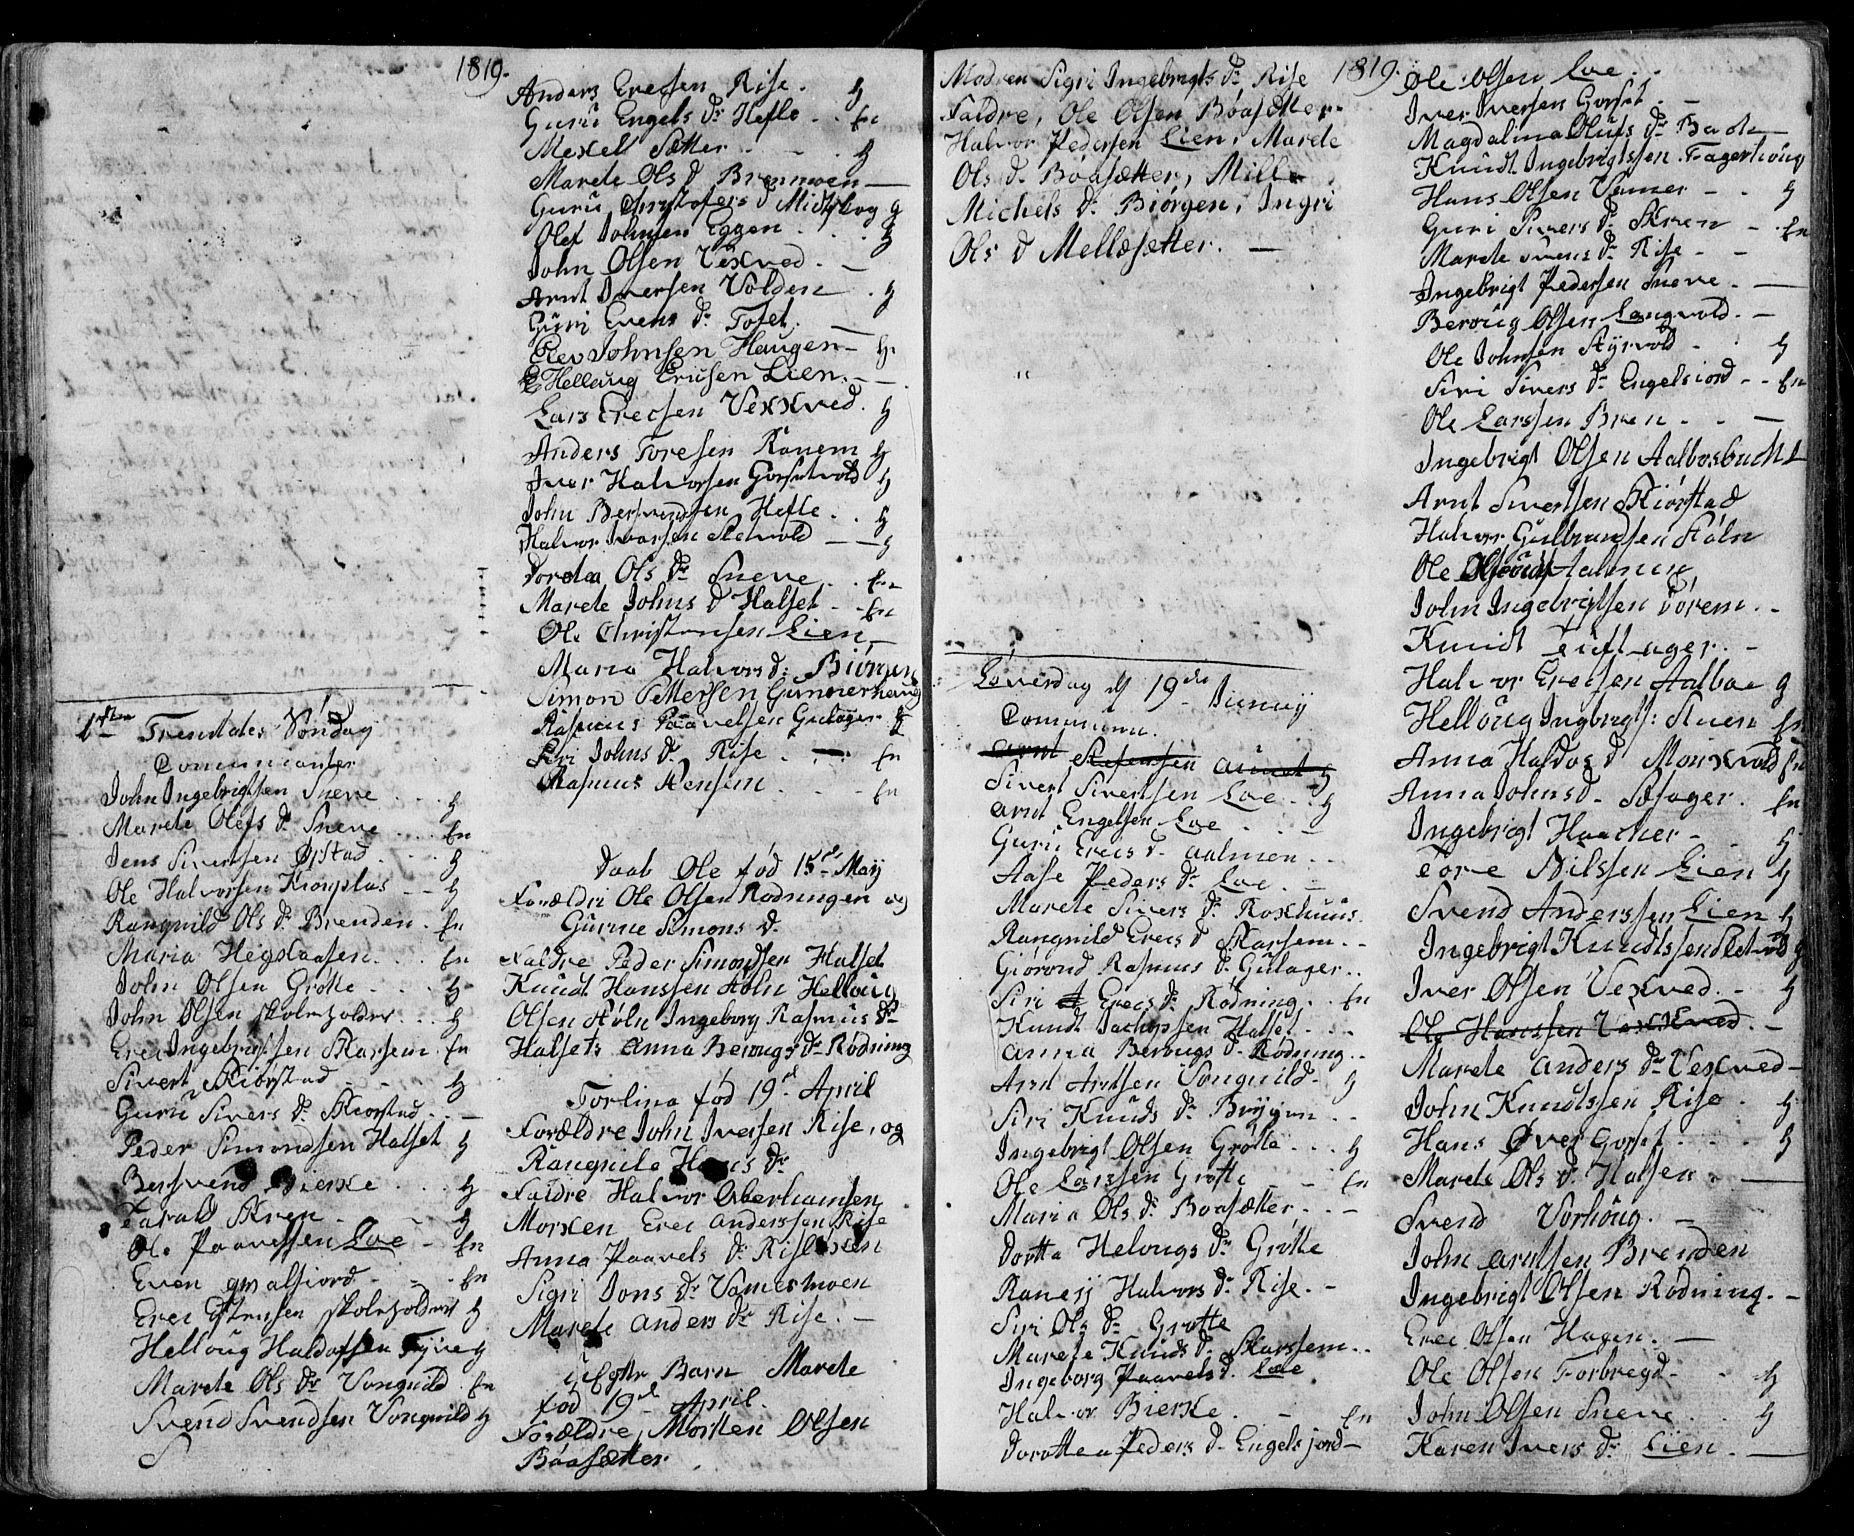 1819.
1ste Trenitates Søndag
Communicanter
John Ingebrigtsen Sneve . . . . g
Marete Olefs Dr. Sneve . . . . En
Jens Sivertsen Ørstad . . . g
Ole Halvorsen Kronplas - - g
Rangnild Ols Dr. Brenden . En
Maria Hegstaasen . . . En
John Olsen Grøtte . . . . g
John Olsen Skoleholder . . . g
Erec Ingebrigtsen Skarsem . En
Sivert Skiørstad - - g
Guru Sivers Dr. Skiørstad . . -
Peder Simondsen Halset g
Bersvend Bierke . . . . g
Harald Skren - g
Ole Paavelsen Loe - En
Even gvalsiord . - . En
Erec Estensen Skoleholder g
Helloug Haldossen Tyve g
Marete Ols Dr Vongvild . En
Svend Svendsen Vongvild g
S
Anders Erecsen Rise . g
Guru Engels Dr. Hefle . . En
Mexel Sætter . . - . g
Marete Ols D Brennmoen —
Guru Christofers D Midtskog g
Olef Johnsen Eggen . . . g
John Olsen Vexved . —
Arnt Iversen Volden . g
Guru Evens Dr. Toset . —
Elev Johnsen Haugen - g.
Helloug Ericsen Lien . - -
Lars Erecsen Vexxved . g
Anders Toresen Ranem g
Iver Halvorsen Gorsetvold g
John Bersvendsen Hefle . . g
Halvor Ivarsen Sletvold — — g
Dordea Ols Dr Sneve . . En
Marete Johns D Halset - En
Ole Christensen Lien —
Maria Halvors D: Biørgen
Simon Pettersen Gunnerhaug
Rasmus Paavelsen Gulager g
Siri Johns Dr. Rise . — . En
Rasmus Hensem . . - En
Daab Ole fød 15de May
Forældre Ole Olsen Rødningen og
Gurue Simons Dr
Faldre Peder Simondsen Halset
Knudt Hanssen Høln Helloug
Olsen Høln Ingeborg Rasmus Dr
Halset: Anna Berougs Dr Rødning
Torlina fød 19de April
Forældre John Iversen Rise, og
Rangnile Hans Dr
Faldre Halvor Oberhamsen
Morxen Erec Anderssen Rise
Anna Paavels Dr Risløkken
Sigri Jons Dr Vamesmoen
Marete Anders Dr Rise . —
Uægte Barn Marete
fød 19de April.
Forældre, Morten Olsen
Boasætter .
Modren Sigri Ingebrigts Dr Rise
Faldre, Ole Olsen Boasætter
Halvor Pedersen Lien, Marete
Ols Dr Boasætter, Mille
Michels Dr. Biørgen, Ingri
Ols D Mellesætter. —
1819.
Løverdag d 19de Juny
Communi.
Sivert Sivertsen Loe . . g
Arnt Engelsen Loe . . . —
Guru Erecs D. Aalmen . .
Aase Peders Dr. Loe . =
Marete Sivers Dr. Roxhuus
Rangnild Erecs D Skarsem . -
Giørond Rasmus Dr. Gulager . .
Siri Erecs Dr. Rødning . . En
Knudt Jachopsen Halset . . .
Anna Berougs D. Rødning . .
Arnt Arntsen Vongvild - g
Siri Knuds Dr Bryggen . .
Ingebrigt Olsen Grøtte . . . g
Ole Larssen Grøtte - - En
Maria Ols Dr. Boasætter . . —
Dortta Helougs Dr. Grøtte
Ranesy Halvors Dr. Rise . -
Siri Ols Dr Grøtte
Marete Knuds D. Skarssem . .
Ingeborg Paavels D. Loe .
Halvor Bierke . - En
Dorottea Peders D. Engelsjord -
Ole Olsen Loe . .
Iver Iversen Gorset . —
Magdalina Olufs Dr Bade
Knudt Ingebrigtssen Fagerhoug
Hans Olsen Vemer - . g
Guri Sivers Dr. Skren - . En
Marete Svens Dr. Rise . - -
Ingebrigt Pedersen Sneve . —
Beroug Olsen Langvold . —
Ole Johnsen Styrvold - g
Siri Sivers Dr Engelsiord - - En
Ole Larssen Bren . . - —
Ingebrigt Olsen Aalbosbucht
Arnt Sivertsen Skiørstad
Halvor Gulbrandsen Høln
Ole Aalmen
John Ingebrigtsen Dørem . .
Knudt Luftager . -
Halvor Erecsen Aalboe g
Helloug Ingbrigts: Stuen En
Anna Haldos D Monxvold En
Anna Johns D. Sæsager . En
Ingebrigt Haacker - g
Tore Nilssen Lien g
Svend Anderssen Lien g
Ingebrigt Knudtssen Sletvold g
Iver Olsen Vexved . - g
Ole Hanssen Vexxved . -
Marete Anders Dr Vexved -
John Knudtssen Rise . g
Hans Øver Gorset . . . g
Marete Ols Dr. Halsen —
Svend Vorhoug . —
John Arntsen Brenden
Ingebrigt Olsen Rødning . -
Erec Olsen Hagen . —
Ole Olsen Forbregd - . g
John Olsen Sneve . . g
Karen Ivers Dr. Lien . —